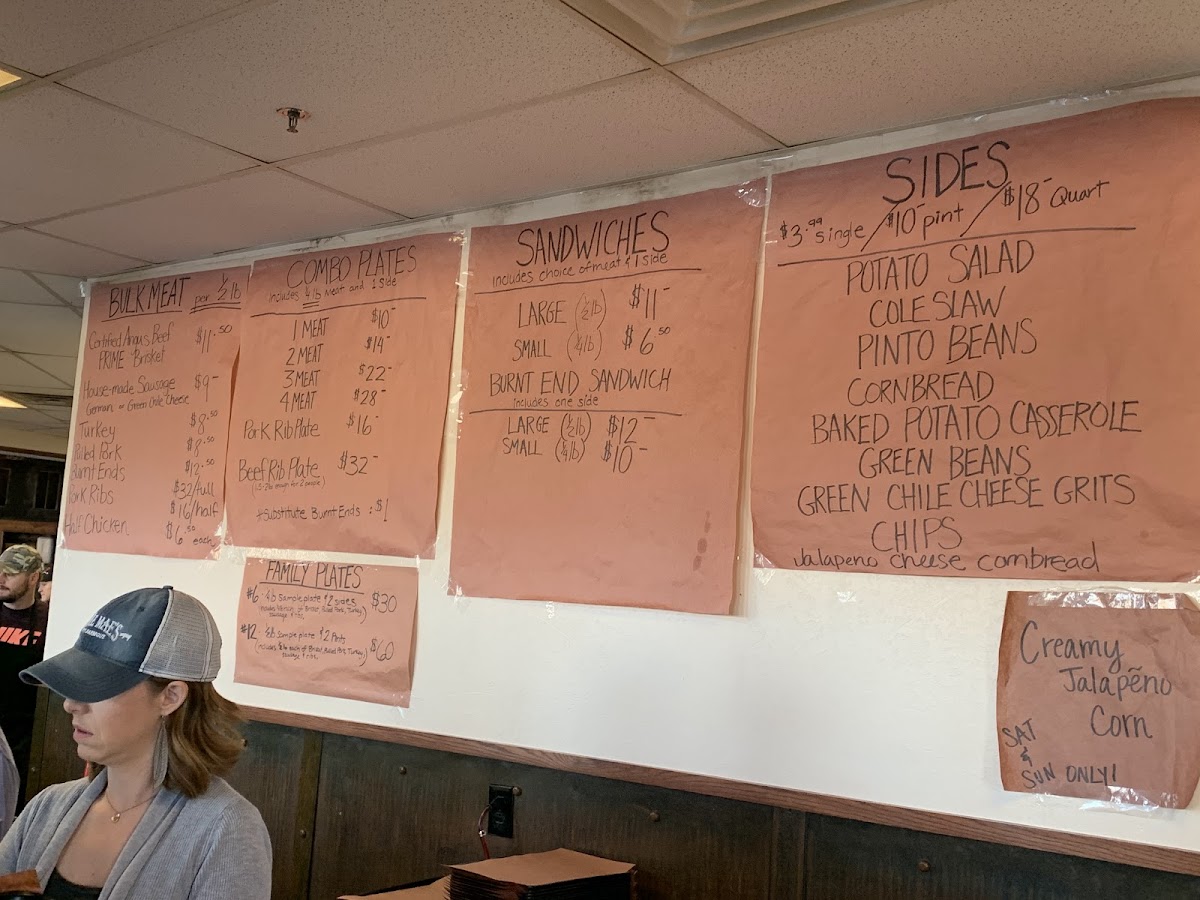 BULK MEAT per ½ lb
Certified Angus Beef
PRIME Brisket $11.50
House-made Sausage $9-
German or Green Chile Cheese
Turkey $8.50
Pulled Pork $8.50
Burnt Ends $12.50
Pork Ribs $32/full
$16/half
Half Chicken $6.50 each
COMBO PLATES
includes ¼ lb Meat and 1 side
1 MEAT $10-
2 MEAT $14-
3 MEAT $22-
4 MEAT $28-
Pork Rib Plate $16-
Beef Rib Plate $32-
enough for 2 people)
*Substitute Burnt Ends : $1
FAMILY PLATES
#6 - ¼ lb Sample plate & 2 sides $30
#12 - ½ lb Sample plate & 2 Pints $60
(includes ½ lb each of Brisket, Pulled Pork, Turkey,
sausage & ribs)
SANDWICHES
includes choice of meat & 1 side
LARGE (½ lb) $11-
SMALL (¼ lb) $6.50
BURNT END SANDWICH
includes one side
LARGE (½ lb) $12-
SMALL (¼ lb) $10-
SIDES
$3.99 single / $10- pint / $18- Quart
POTATO SALAD
COLE SLAW
PINTO BEANS
CORNBREAD
BAKED POTATO CASSEROLE
GREEN BEANS
GREEN CHILE CHEESE GRITS
CHIPS
Jalapeno cheese cornbread
Creamy
Jalapẽno
Corn
SAT
&
SUN ONLY!
MAE'S